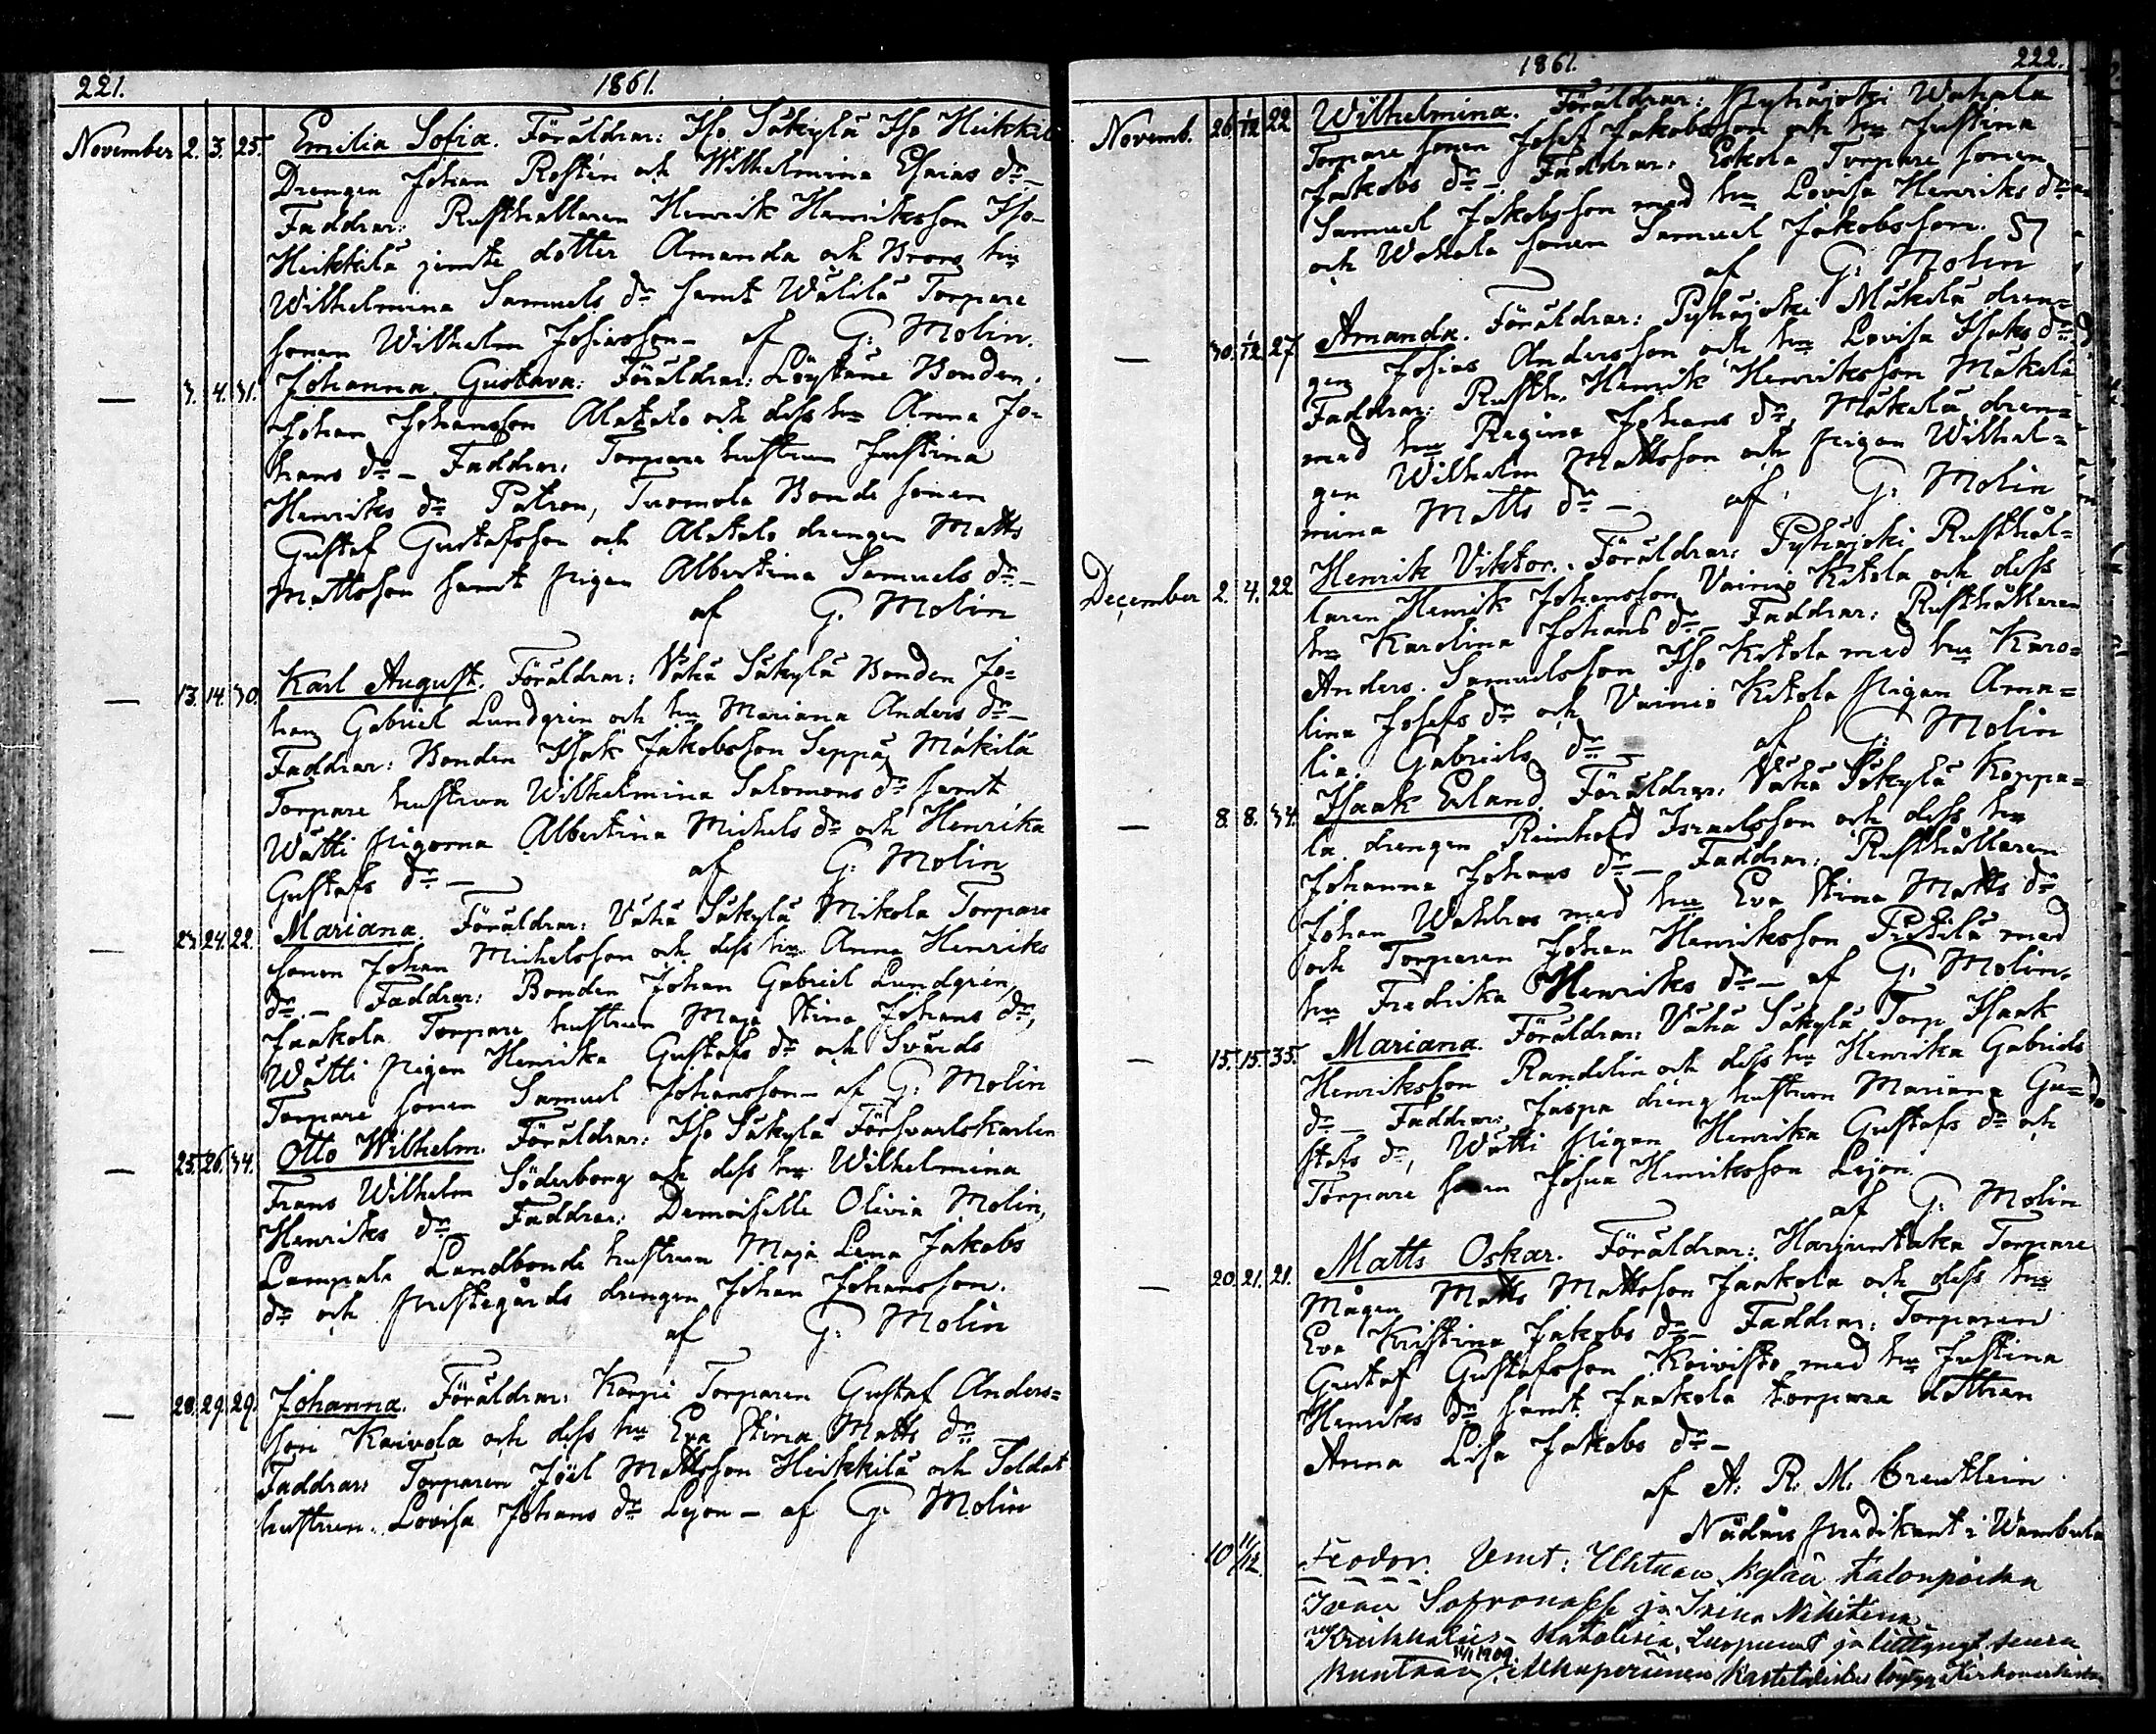 221. 1861.
November 2. 3. 25. Emilia Sofia. Föräldrar: Iso Säkylä Iso Heikkilä
Drengen Johan Rostén och Wilhelmina Esaias dr.
Faddrar: Rusthållaren Henrik Henriksson Iso-
Heikkilä jemte dotter Amanda och Brors hu
Wilhelmina Samuels dr samt Wälilä Torpare
sonen Wilhelm Josiasson - af G: Molin.
— 3. 4. 31. Johanna Gustava: Föräldrar: Löytäne Bonden
Johan Johansson Alatalo och dess hu Anna Jo-
hans dr - Faddrar: Torpare hustrun Justina
Henriks dr Patron, Tuomola Bonde sonen
Gustaf Gustafsson och Alatalo drengen Matts
Mattsson samt pigan Albertina Samuels dr -
af G. Molin
— 13. 14. 30. Karl August. Föräldrar: Vähä Säkylä Bonden Jo=
han Gabriel Lundgrén och hu Mariana Anders dr -
Faddrar: Bonden Isak Jakobsson Seppä, Mäkilä
Torpare hustrun Wilhelmina Salomons dr samt
Wätti pigorna Albertina Michels dr och Henrika
Gustafs dr - af G: Molin
— 23. 24. 22. Mariana. Föräldrar: Vähä Säkylä Mikola Torpare
sonen Johan Michelsson och dess hu Anna Henriks
dr. - Faddrar: Bonden Johan Gabriel Lundgrén,
Jaakola Torpare hustrun Maja Stina Johans dr,
Wätti pigan Henrika Gustafs dr och Svärds
Torpare sonen Samuel Johansson - af G: Molin
— 25. 26. 34. Otto Wilhelm. Föräldrar: Iso Säkylä Försvarskarlen
Frans Wilhelm Söderborg och dess hu Wilhelmina
Henriks dr - Faddrar: Demoiselle Olivia Molin,
Lampala Landbonde hustrun Maja Lena Jakobs
dr och prestegårds drengen Johan Johansson.
af G: Molin
— 28. 29. 29. Johanna. Föräldrar: Korpi Torparen Gustaf Anders=
son Koivola och dess hu Eva Stina Matts dr
Faddrar: Torparen Joel Mattsson Heikkilä och Soldat
hustrun Lovisa Johans dr Lejon - af G: Molin
1861. 222.
Novemb. 26. 1/12 22 Wilhelmina. Föräldrar: Pyhäjoki Wahala
Torpare sonen Josef Jakobsson och hu Justina
Jakobs dr - Faddrar: Eskola Torpare sonen
Samuel Jakobsson med hu Lovisa Henriks dr
och Wahala sonen Samuel Jakobsson.
af G: Molin
— 30. 1/12 27 Amanda. Föräldrar: Pyhäjoki Mäkelä dren=
gen Josias Andersson och hu Lovisa Isaks dr
Faddrar: Rusth. Henrik Henriksson Mäkelä
med hu Regina Johans dr, Mäkelä dren=
gen Wilhelm Mattsson och pigan Wilhel=
mina Matts dr - af G: Molin
December 2. 4. 22 Henrik Viktor. Föräldrar: Pyhäjoki Rusthål=
laren Henrik Johansson Vainio Ketola och dess
hu Karolina Johans dr - Faddrar: Rusthållaren
Anders Samuelsson Iso Ketola med hu Karo=
lina Josefs dr och Vainio Ketola pigan Ama=
lia Gabriels dr - af G: Molin
— 8. 8. 34. Isaak Erland. Föräldrar: Vähä Säkylä Koppa=
la drengen Reinhold Israelsson och dess hu
Johanna Johans dr - Faddrar: Rusthållaren
Johan Wahlroos med hu Eva Stina Matts dr
och Torparen Johan Henriksson Pietilä med
hu Fredrika Henriks dr - af G: Molin.
— 15. 15. 35. Mariana. Föräldrar: Vähä Säkylä Torp Isaak
Henriksson Randelin och dess hu Henrika Gabriels
dr - Faddrar: Jaspa dreng hustrun Mariana Gu=
stafs dr, Wätti pigan Henrika Gustafs dr och
Torpare sonen Josua Henriksson Lejon
af G: Molin
— 20. 21. 21. Matts Oskar. Föräldrar: Harjuntaka Torpare
Mågen Matts Mattsson Jaakola och dess hu
Eva Kristina Jakobs dr - Faddrar: Torparen
Gustaf Gustafsson Koivisto med hu Justina
Henriks dr samt Jaakola torpare dottren
Anna Lisa Jakobs dr -
af A. R. M. Creutlein
Nådårs predikant i Wambula
10 11/12. Feodor. Vmt: Uhtuan kylän talonpoika
Ivan Sofronoff ja Irena Nikitina
Kreikkalais-katolisia, Luopunut ja liittynyt seura
kuntaan 11/1 1909.